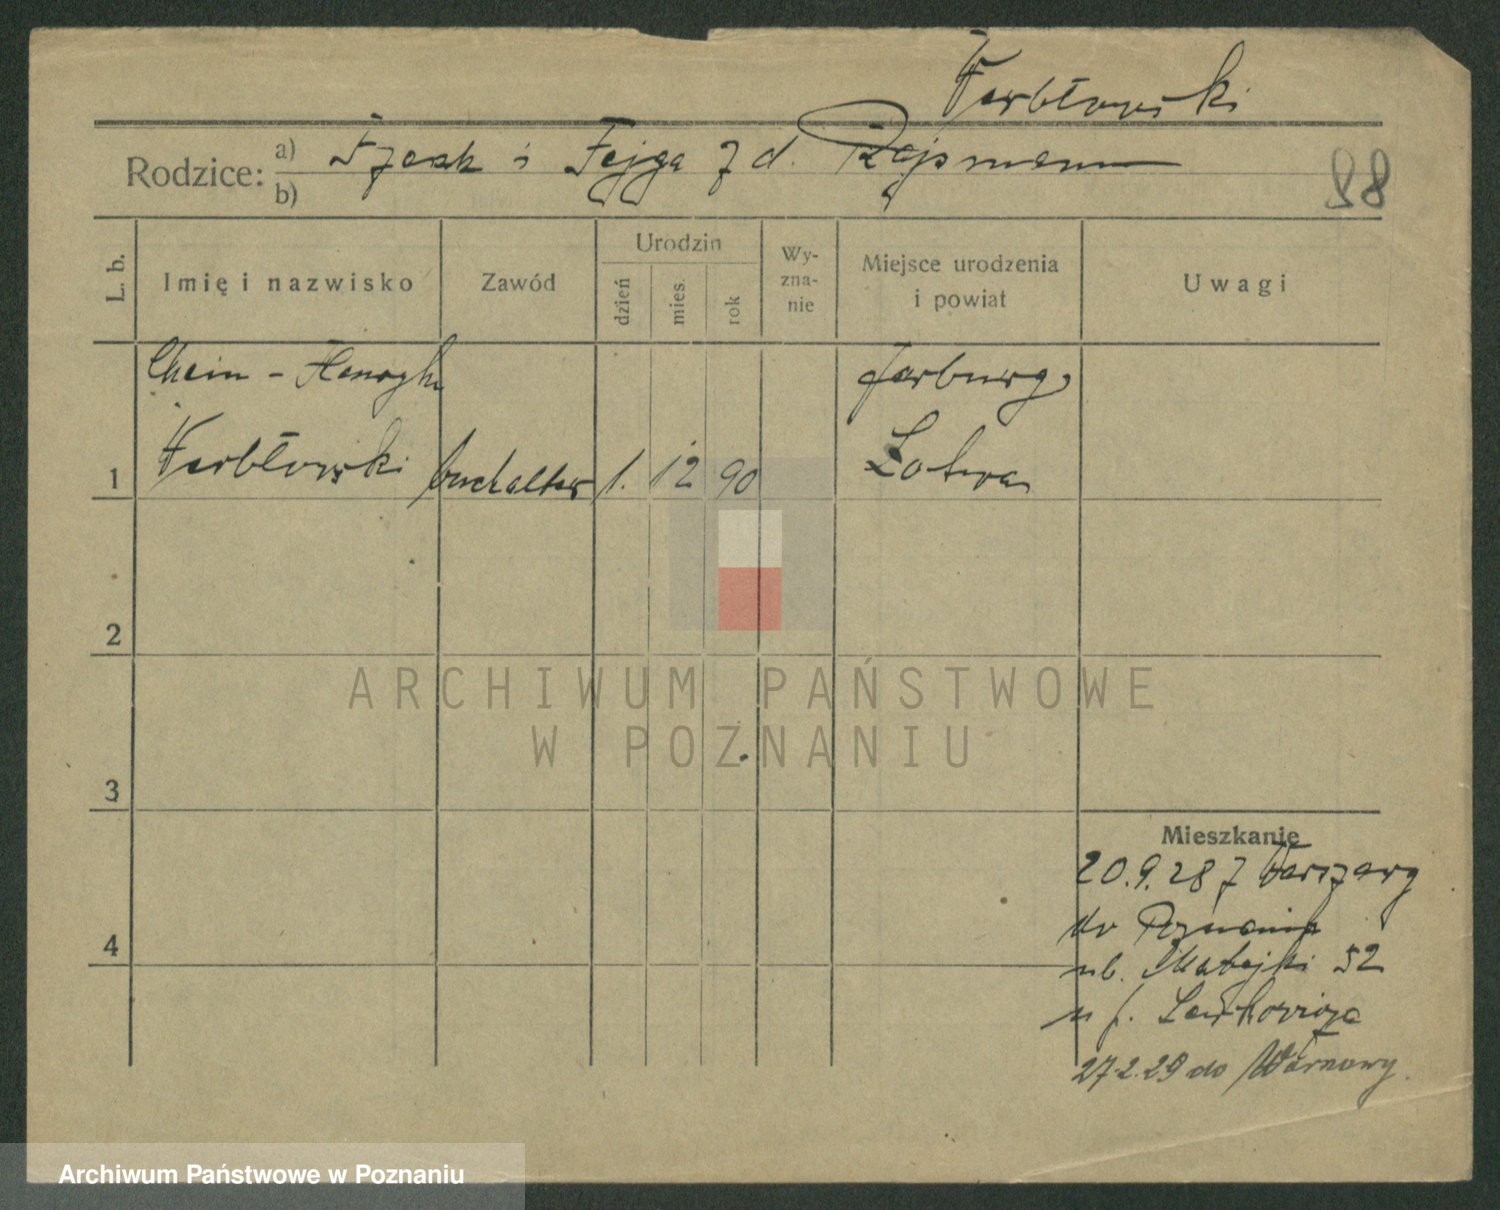 Warbłowski
Rodzice: a) Izaak i Fejga z d. Rajsmann
b)
88
L. b. Imię i nazwisko Zawód Urodzin dzień mies. rok Wy-zna-nie Miejsce urodzenia i powiat Uwagi
Chaim - Henryk Jarburg,
1 Warbłowski buchalter 1. 12 90 Łotwa
2
3
4
Mieszkanie
20.9.28 z Warszawy
do Poznania
ul. Matejki 52
u f. Lewkowicza
27.2.29 do Warszawy.
ARCHIWUM PAŃSTWOWE
W POZNANIU
Archiwum Państwowe w Poznaniu